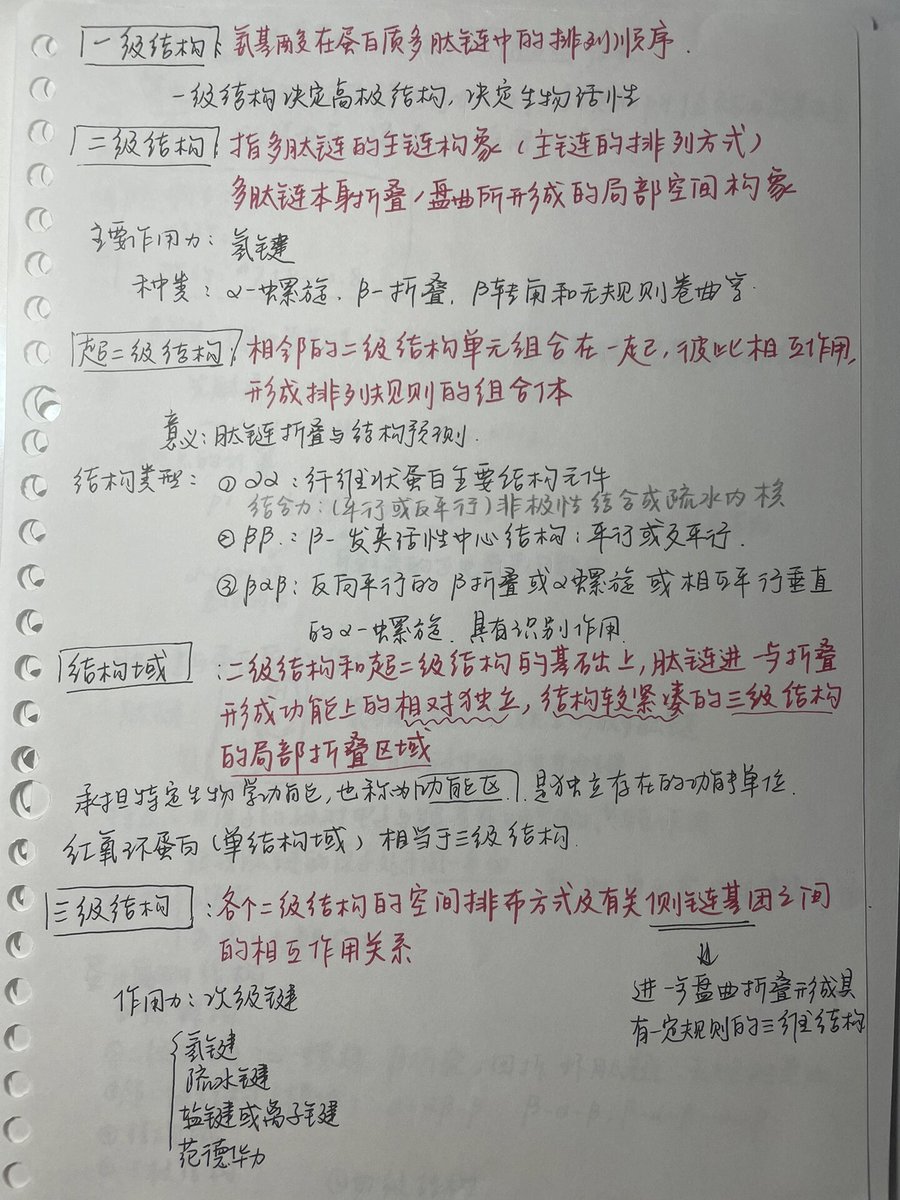 一级结构：氨基酸在蛋白质多肽链中的排列顺序.
一级结构决定高级结构，决定生物活性
二级结构：指多肽链的主链构象（主链的排列方式）
多肽链本身折叠/盘曲所形成的局部空间构象
主要作用力：氢键
种类：α-螺旋、β-折叠，β转角和无规则卷曲等.
超二级结构：相邻的二级结构单元组合在一起，彼此相互作用，
形成排列规则的组合体
意义：肽链折叠与结构预测.
结构类型：①αα：纤维状蛋白主要结构元件
结合力：（平行或反平行）非极性结合成疏水内核
②ββ：β-发夹活性中心结构：平行或反平行.
③βαβ：反向平行的β折叠或α螺旋或相互平行垂直
的α-螺旋.具有识别作用.
结构域：二级结构和超二级结构的基础上，肽链进一步折叠
形成功能上的相对独立，结构较紧凑的三级结构
的局部折叠区域
承担特定生物学功能，也称为功能区.是独立存在的功能单位.
红氧还蛋白（单结构域）相当于三级结构.
三级结构：各个二级结构的空间排布方式及有关侧链基团之间
的相互作用关系
↓
进一步盘曲折叠形成具
有一定规则的三维结构
作用力：次级键
氢键
疏水键
盐键或离子键
范德华力